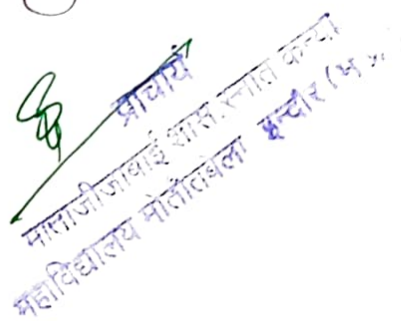 प्राचार्य
माताजीजाबाई शास. स्नात कन्या
महाविद्यालय मोतीतबेला इन्दौर (म